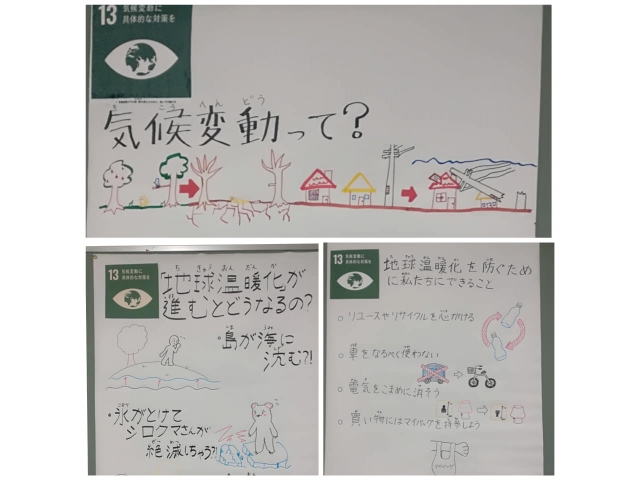 13 気候変動に
具体的な対策を
き こう へん どう
気候変動って?
13 気候変動に
具体的な対策を
ち きゅう おん だん か
「地球温暖化」が
進むとどうなるの?
・島が海に
沈む?!
・氷がとけて
シロクマさんが
絶滅しちゃう?!
13 気候変動に
具体的な対策を
地球温暖化を防ぐため
に私たちにできること
○ リユースやリサイクルを心がける
○ 車をなるべく使わない
○ 電気をこまめに消そう
○ 買い物にはマイバックを持参しよう